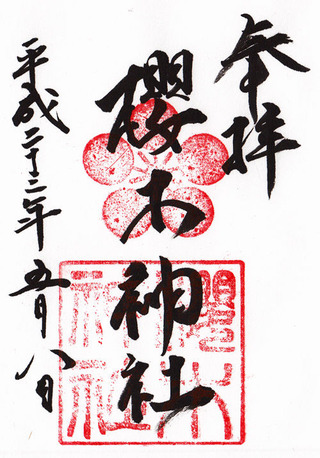 奉拝
櫻木神社
櫻木神社
平成二十二年五月八日